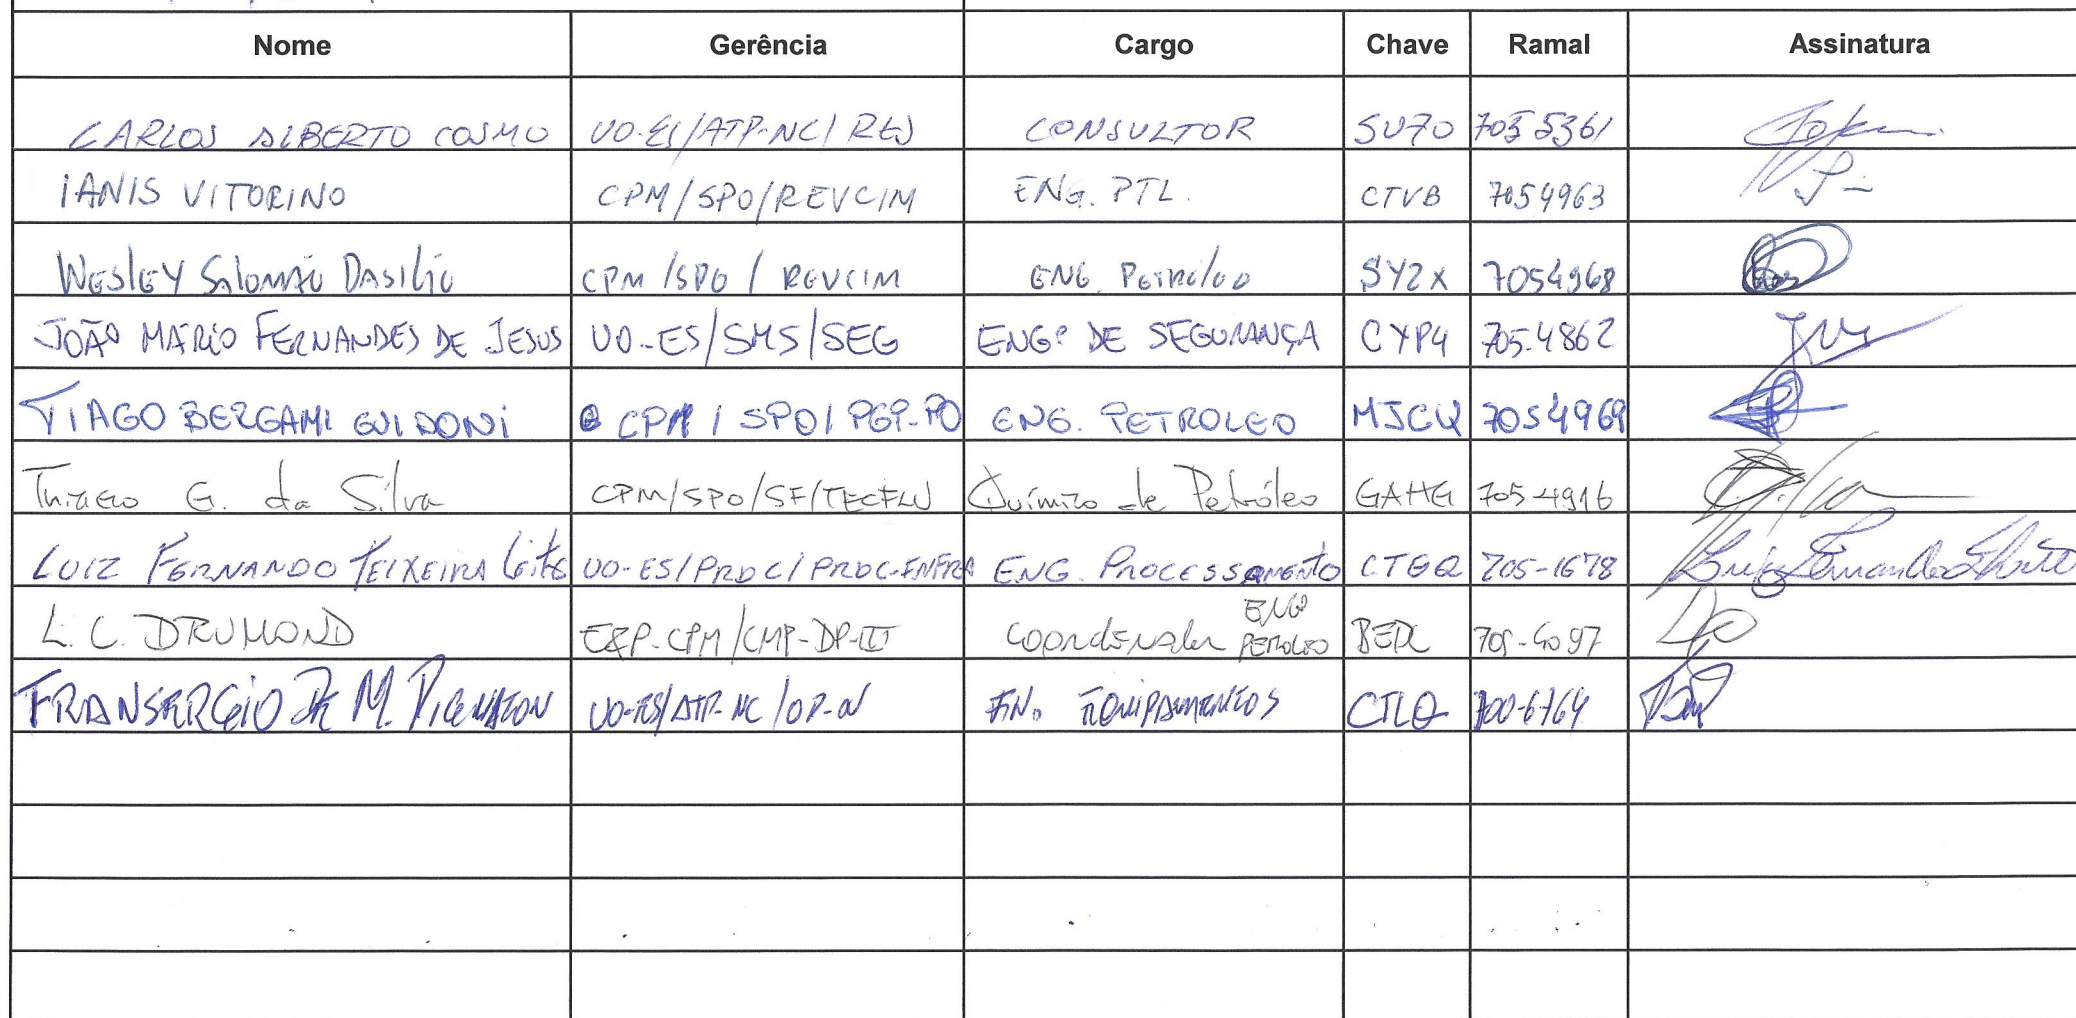 Nome Gerência Cargo Chave Ramal Assinatura
CARLOS ALBERTO COSMO UO-ES/ATP-NC/RES CONSULTOR SU70 7055361
IANIS VITORINO CPM/SPO/REVCIM ENG. PTL. CTVB 7054963
WESLEY SALOMÃO DASILIO CPM/SPO/REVCIM ENG. PETRÓLEO SY2X 7054968
JOÃO MÁRIO FERNANDES DE JESUS UO-ES/SMS/SEG ENGº DE SEGURANÇA CYP4 705.4862
TIAGO BERGAMI GUIDONI CPM/SPO/PGP-PO ENG. PETROLEO MJCQ 7054969
Thiago G. da Silva CPM/SPO/SF/TECFLU Químico de Petróleo GAHG 705-4916
LUIZ FERNANDO TEIXEIRA Leite UO-ES/PROC/PROC-INFRA ENG. PROCESSAMENTO CTGQ 705-1678 Luiz Fernando
L. C. DRUMOND E&P-CPM/CMP-DP-III Coordenador ENGº PETROLEO 705-4097
FRANSERGIO DE M. UO-ES/ATP-NC/OP-N EN. EQUIPAMENTOS CTLQ 700-6764